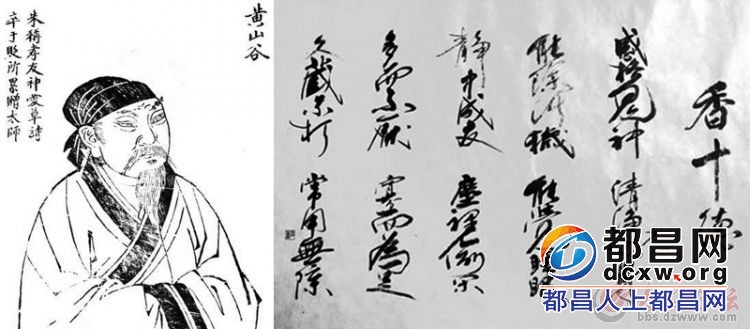 黄山谷
朱稱孝友神愛草詩
卒于貶所累贈太師
香十德
感格鬼神 清淨
能除污穢 能覺睡眠
静中成友 塵裡偷閑
多而不厭 寡而為足
久藏不朽 常用無障
都昌网
dcxw.org
都昌人上都昌网
bbs.dzwww.com